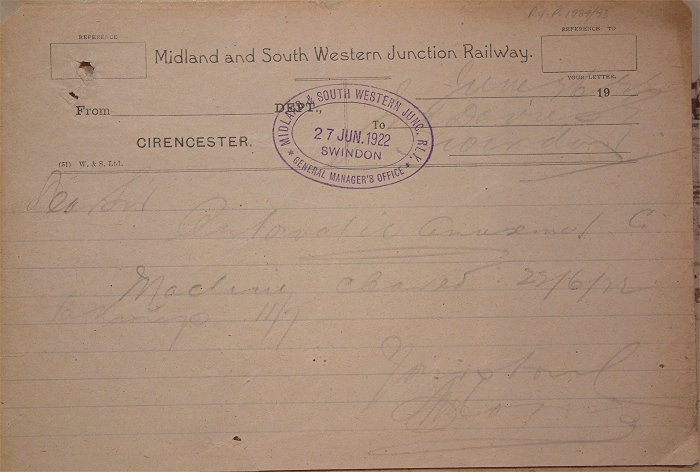 REFERENCE
REFERENCE TO
Midland and South Western Junction Railway.
YOUR LETTER.
From DEPT., 19
To
CIRENCESTER.
(51) W. & S. Ltd.
MIDLAND & SOUTH WESTERN JUNC. RLY.
27 JUN. 1922
SWINDON
* GENERAL MANAGER'S OFFICE *
Swindon
Dear Sir
Automatic Amusement C
Machine cleared 22/6/22
11/7
Yours truly